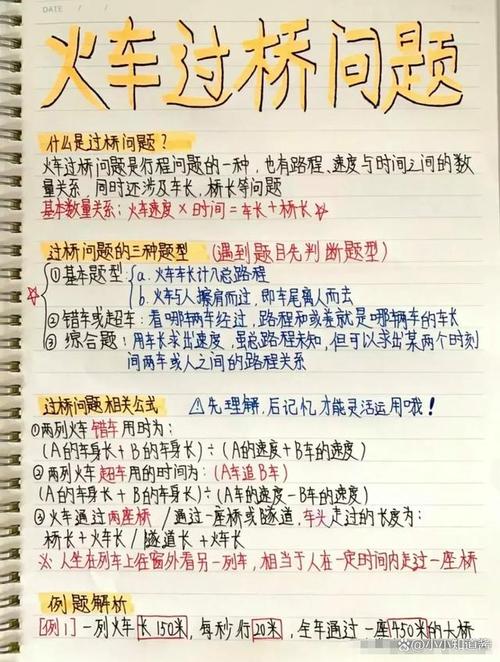 DATE / /
火车过桥问题
什么是过桥问题？
火车过桥问题是行程问题的一种，也有路程、速度与时间之间的数
量关系，同时还涉及车长，桥长等问题
基本数量关系：火车速度×时间＝车长＋桥长☆
过桥问题的三种题型（遇到题目先判断题型）
☆①基本题型{a.火车车长计入总路程
b.火车与人擦肩而过，即车尾离人而去
②错车或超车：看哪辆车经过，路程和或差就是哪辆车的车长
③综合题：用车长求出速度，虽总路程未知，但可以求出某两个时刻
间两车或人之间的路程关系
过桥问题相关公式 ⚠先理解，后记忆才能灵活运用哦！
①两列火车错车用时为：
（A的车身长＋B的车身长）÷（A的速度＋B车的速度）
②两列火车超车用的时间为：（A车追B车）
（A的车身长＋B的车身长）÷（A车的速度－B车的速度）
③火车通过两座桥/通过一座桥或隧道，车头走过的长度为：
桥长＋火车长/隧道长＋火车长
※：人坐在列车上往窗外看另一列车，相当于人在一定时间内走过一座桥
例题解析
[例1]一列火车长150米，每秒行20米，全车通过一座450米的大桥